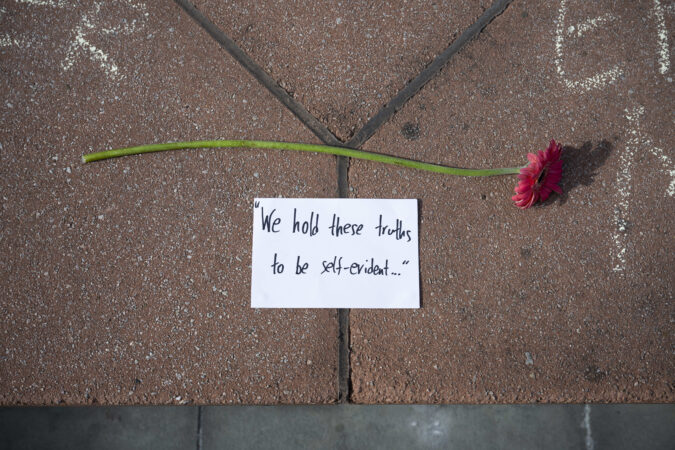 "We hold these truths
to be self-evident..."